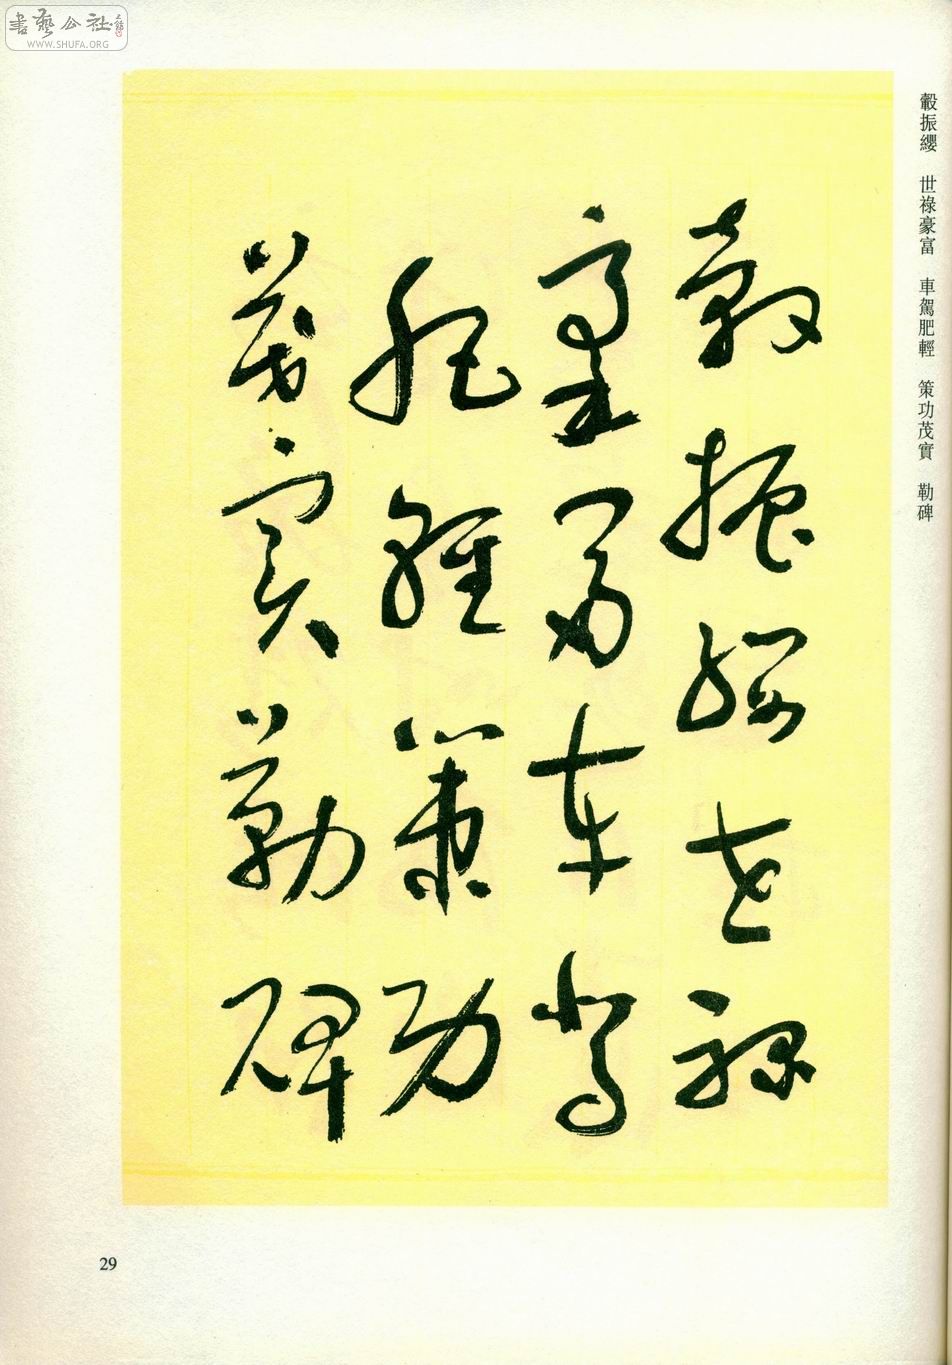 書藝公社
WWW.SHUFA.ORG
轂振纓　世祿豪富　車駕肥輕　策功茂實　勒碑
轂振纓世祿
豪富車駕
肥輕策功
茂實勒碑
29